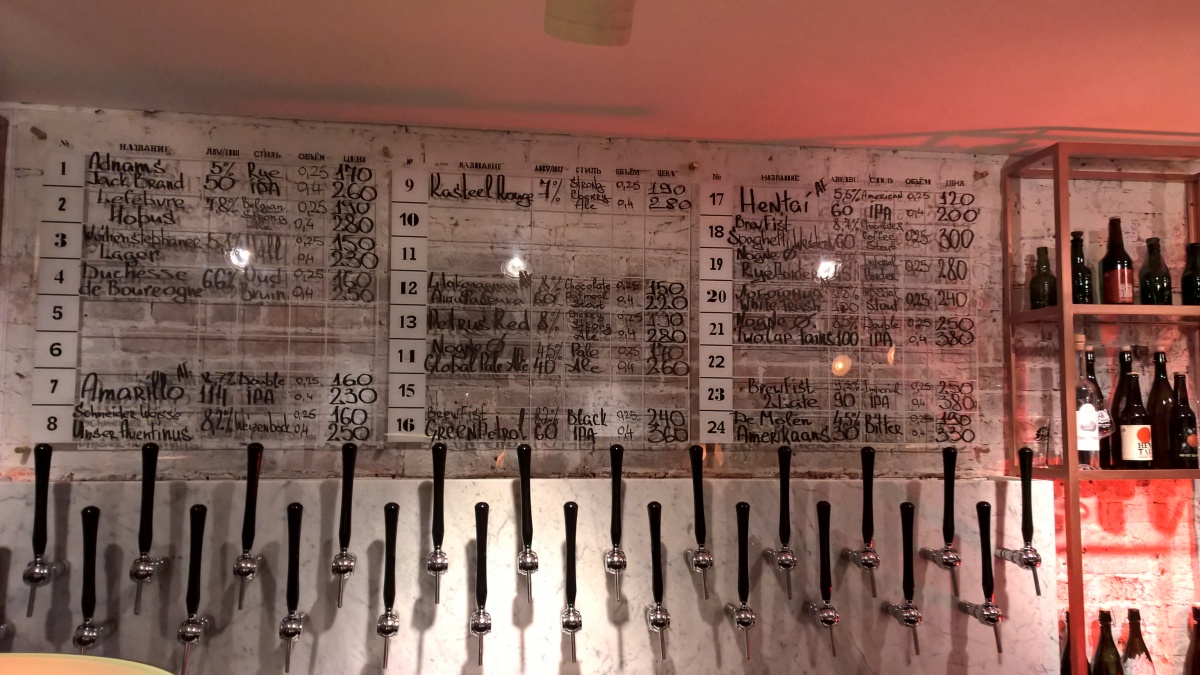 № НАЗВАНИЕ ABV/IBU СТИЛЬ ОБЪЁМ ЦЕНА
1 Adnams 5% Rye 0,25 170
Jack Brand 50 IPA 0,4 260
2 Lefebvre 7,8% Belgian 0,25
Hopus 0,4 280
3 Weihenstephaner 0,25 150
Lager 0,4 230
4 Duchesse 6,6% Oud 0,25 160
de Bourgogne Bruin 0,4 250
5
6
7 Amarillo AF 8,7% Double 0,25 160
114 IPA 0,4 230
8 Schneider Weisse 8,2% Weizenbock 0,25 160
Unser Aventinus 0,4 250
№ НАЗВАНИЕ ABV/IBU СТИЛЬ ОБЪЁМ ЦЕНА
9 Kasteel Rouge 7% Strong 0,25 190
Cherry
Ale 0,4 280
10
11
12 Chocolate 0,25 150
60 Oatmeal
Stout 0,4 220
13 Petrus Red 8% 0,25 190
Strong
Ale 0,4 280
14 Nøgne Ø 4,5% Pale 0,25 170
Global Pale Ale 40 Ale 0,4 260
15
16 Brewfist 8,2% Black 0,25 240
GREENPetrol 60 IPA 0,4 360
№ НАЗВАНИЕ ABV/IBU СТИЛЬ ОБЪЁМ ЦЕНА
17 Hentai AF 5,6% American 0,25 120
60 IPA 0,4 200
18 Brewfist 8,7%
Spaghetti Western 60 Coffee Stout 300
19 Nøgne Ø Imperial 0,25 280
Rye Porter Porter
20 0,25 240
Stout
21 Nøgne Ø 8,5% Double 0,25 250
Two Captains 100 IPA 0,4 380
22
23 Brewfist Imperial 0,25 250
2Late 90 IPA 0,4 380
24 De Molen 4,5% Bitter 0,25
Amerikaans 30 0,4 330